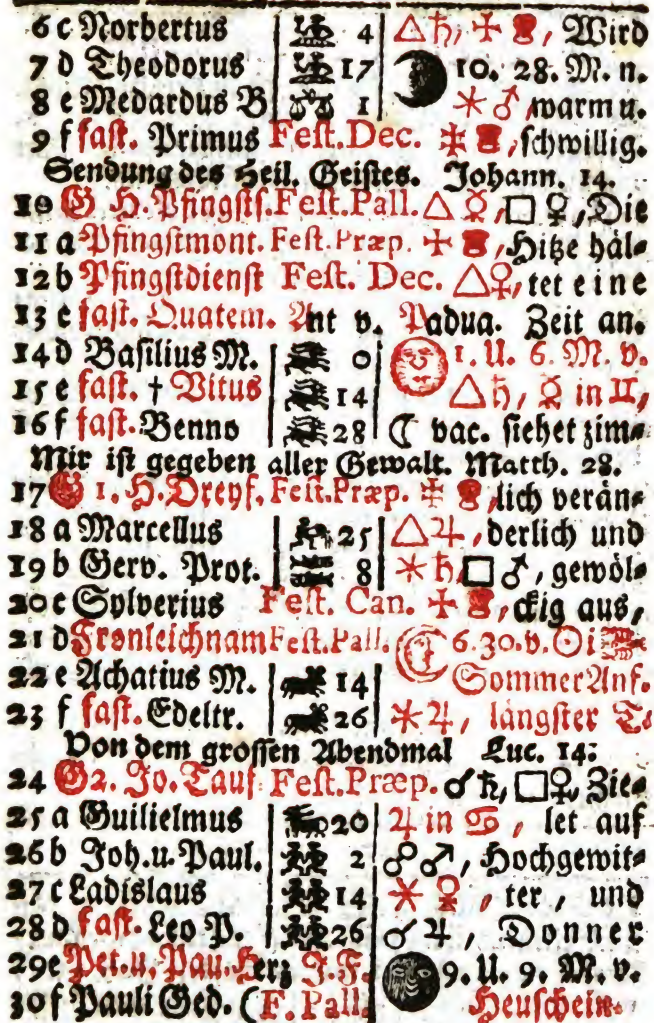 6 c Norbertus 4 △♄, ✠, Wird
7 d Theodorus 17 10. 28. M. n.
8 e Medardus B ♎ 1 ⚹♂, warm u.
9 f fast. Primus Fest. Dec. ✠, schwillig.
Sendung des Heil. Geistes. Johann. 14.
10 G H. Pfingstf. Fest. Pall. △☿, □♀, Die
11 a Pfingstmont. Fest. Præp. ✠, Hitze häl⸗
12 b Pfingstdienst Fest. Dec. △♀, tet eine
13 c fast. Quatem. Ant v. Padua. Zeit an.
14 d Basilius M. 0 1. U. 6. M. v.
15 e fast. † Vitus 14 △♄, ☿ in ♊,
16 f fast. Benno 28 ☾ vac. siehet zim⸗
Mir ist gegeben aller Gewalt. Matth. 28.
17 G 1. H. Dreyf. Fest. Præp. ✠, lich verän⸗
18 a Marcellus 25 △♃, derlich und
19 b Gerv. Prot. 8 ⚹♄, □♂, gewöl⸗
20 c Sylverius Fest. Can. ✠, ckig aus,
21 d Fronleichnam Fest. Pall. ☾ 6. 30. v. ☉ i ♋
22 e Achatius M. 14 Sommer Anf.
23 f fast. Edeltr. 26 ⚹♃, längster T.
Von dem grossen Abendmal Luc. 14:
24 G 2. Jo. Tauf Fest. Præp. ☌♄, □♀, Zie⸗
25 a Guilielmus 20 ♃ in ♋, let auf
26 b Joh. u. Paul. 2 ☍♂, Hochgewit⸗
27 c Ladislaus 14 ⚹♀, ter, und
28 d fast. Leo P. 26 ☌♃, Donner
29 e Pet. u. Pau. Herz J. F. 9. U. 9. M. v.
30 f Pauli Ged. (F. Pall. Heuschein.